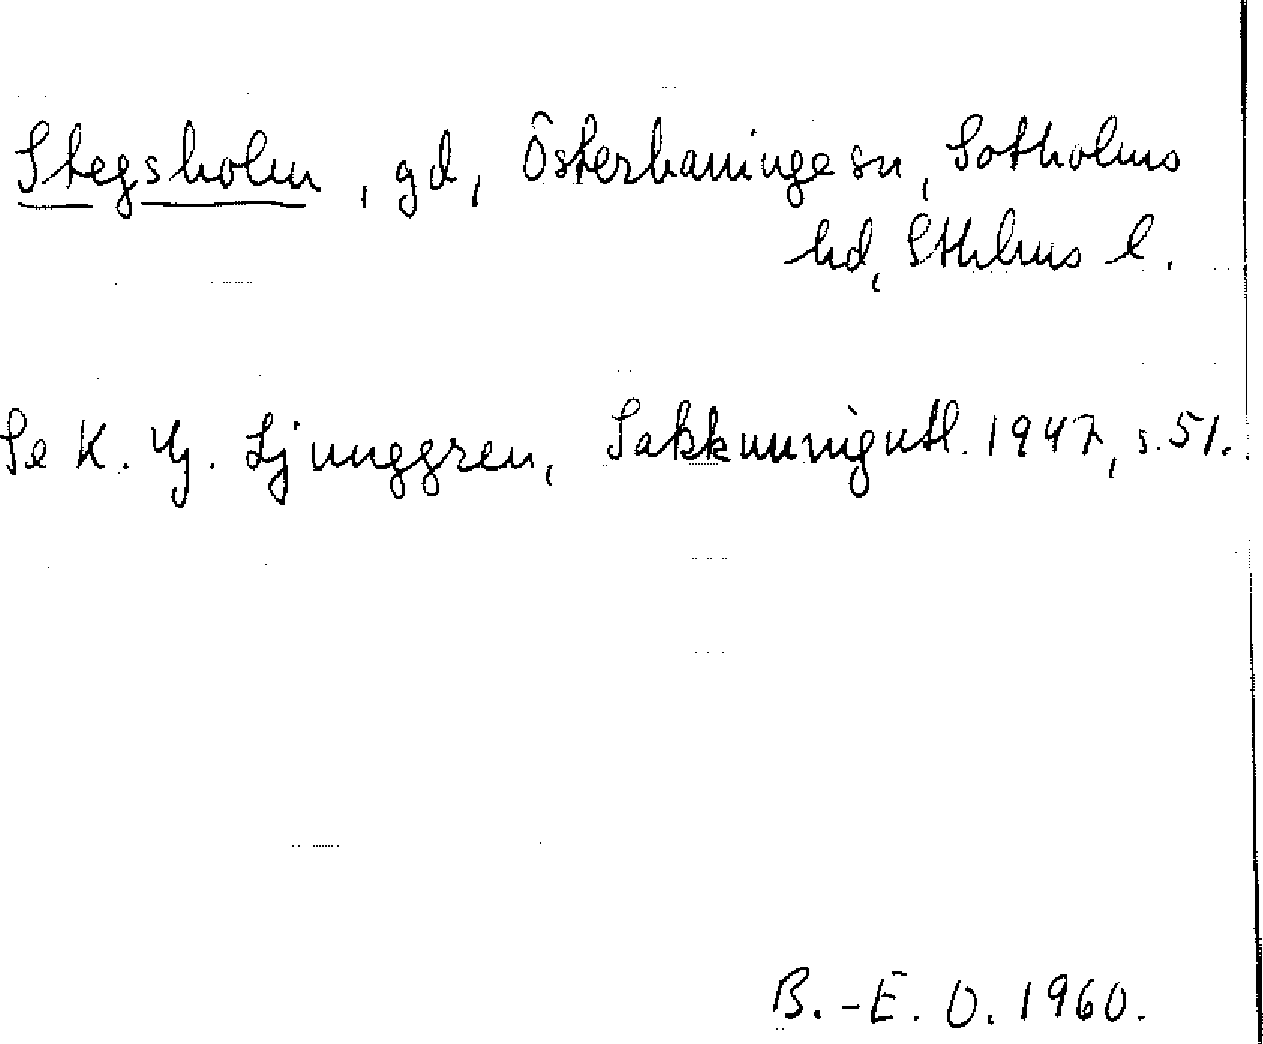 Stegsholm, gd, Österhaninge sn, Sotholms
hd, Sthlms l.
Se K. G. Ljunggren, Sakkunnigutl. 1947, s. 51.
B.-E. O. 1960.